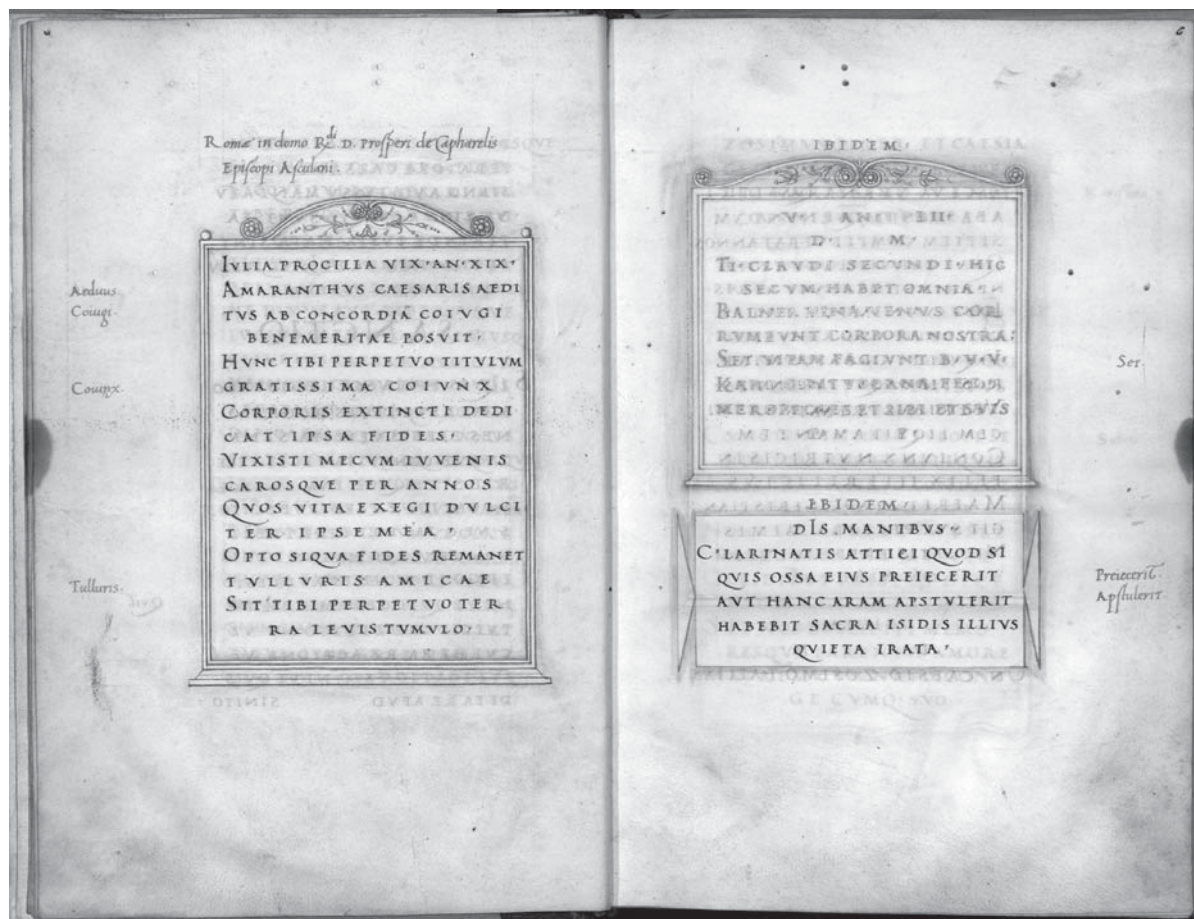 Romæ in domo R.di D. Prosperi de Capharelis
Episcopi Asculani.
IVLIA PROCILLA VIX·AN·XIX·
AMARANTHVS CAESARIS AEDI
TVS AB CONCORDIA COIVGI
BENEMERITAE POSVIT·
HVNC TIBI PERPETVO TITVLVM
GRATISSIMA COIVNX
CORPORIS EXTINCTI DEDI
CAT IPSA FIDES·
VIXISTI MECVM IVVENIS
CAROSQVE PER ANNOS
QVOS VITA EXEGI DVLCI
TER IPSE MEA·
OPTO SIQVA FIDES REMANET
TVLLVRIS AMICAE
SIT TIBI PERPETVO TER
RA LEVIS TVMVLO·
Aeduus.
Coiugi.
Coiunx.
Tulluris.
6
IBIDEM·
D· M·
TI·CLAVDI SECVNDI·HIC
SECVM HABET OMNIA·
BALNEA VINA VENVS COR
RVMPVNT CORPORA NOSTRA·
SET VITAM FACIVNT B·V·V·
Set.
IBIDEM·
DIS·MANIBVS·
C·LARINATIS ATTICI QVOD SI
QVIS OSSA EIVS PREIECERIT
AVT HANC ARAM APSTVLERIT
HABEBIT SACRA ISIDIS ILLIVS
QVIETA IRATA·
Preiecerit.
Apstulerit.